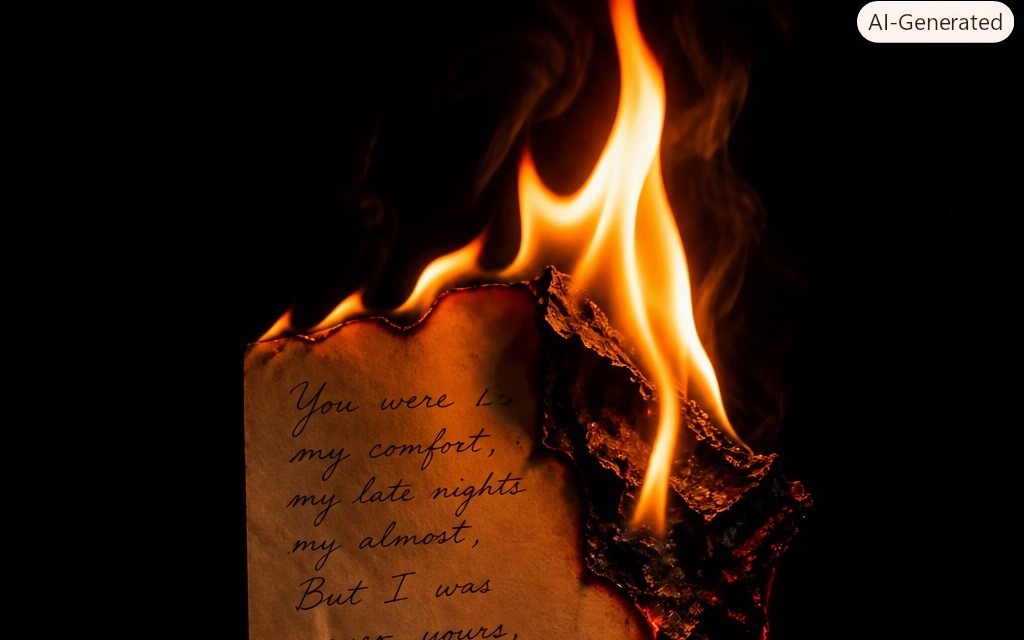 AI-Generated
You were
my comfort,
my late nights
my almost,
But I was
yours,